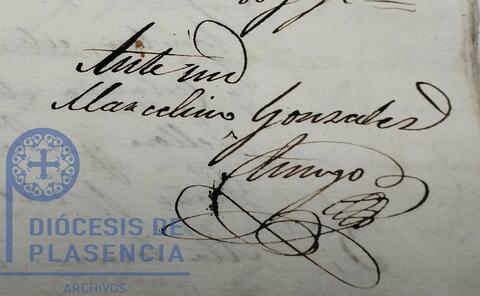 Ante mi
Marcelino Gonzalez
Amigo
DIÓCESIS DE
PLASENCIA
ARCHIVOS